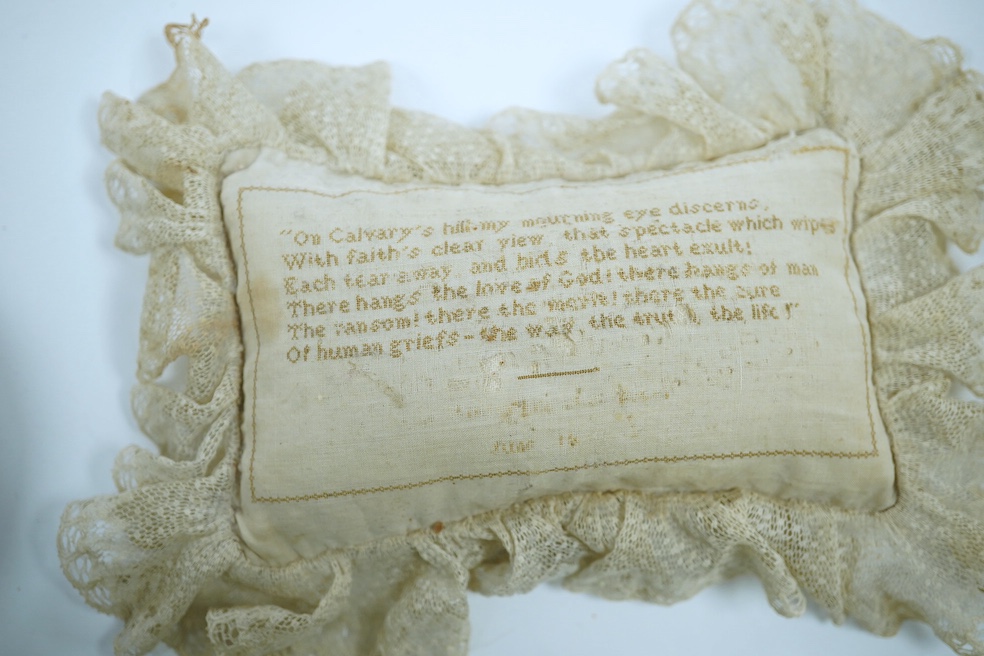 "On Calvary's hill my mourning eye discerns,
With faith's clear view, that spectacle which wipes
Each tear away and bids the heart exult!
There hangs the love of God! there hangs of man
The ransom! there the merit! there the cure
Of human griefs - the way, the truth, the life!"